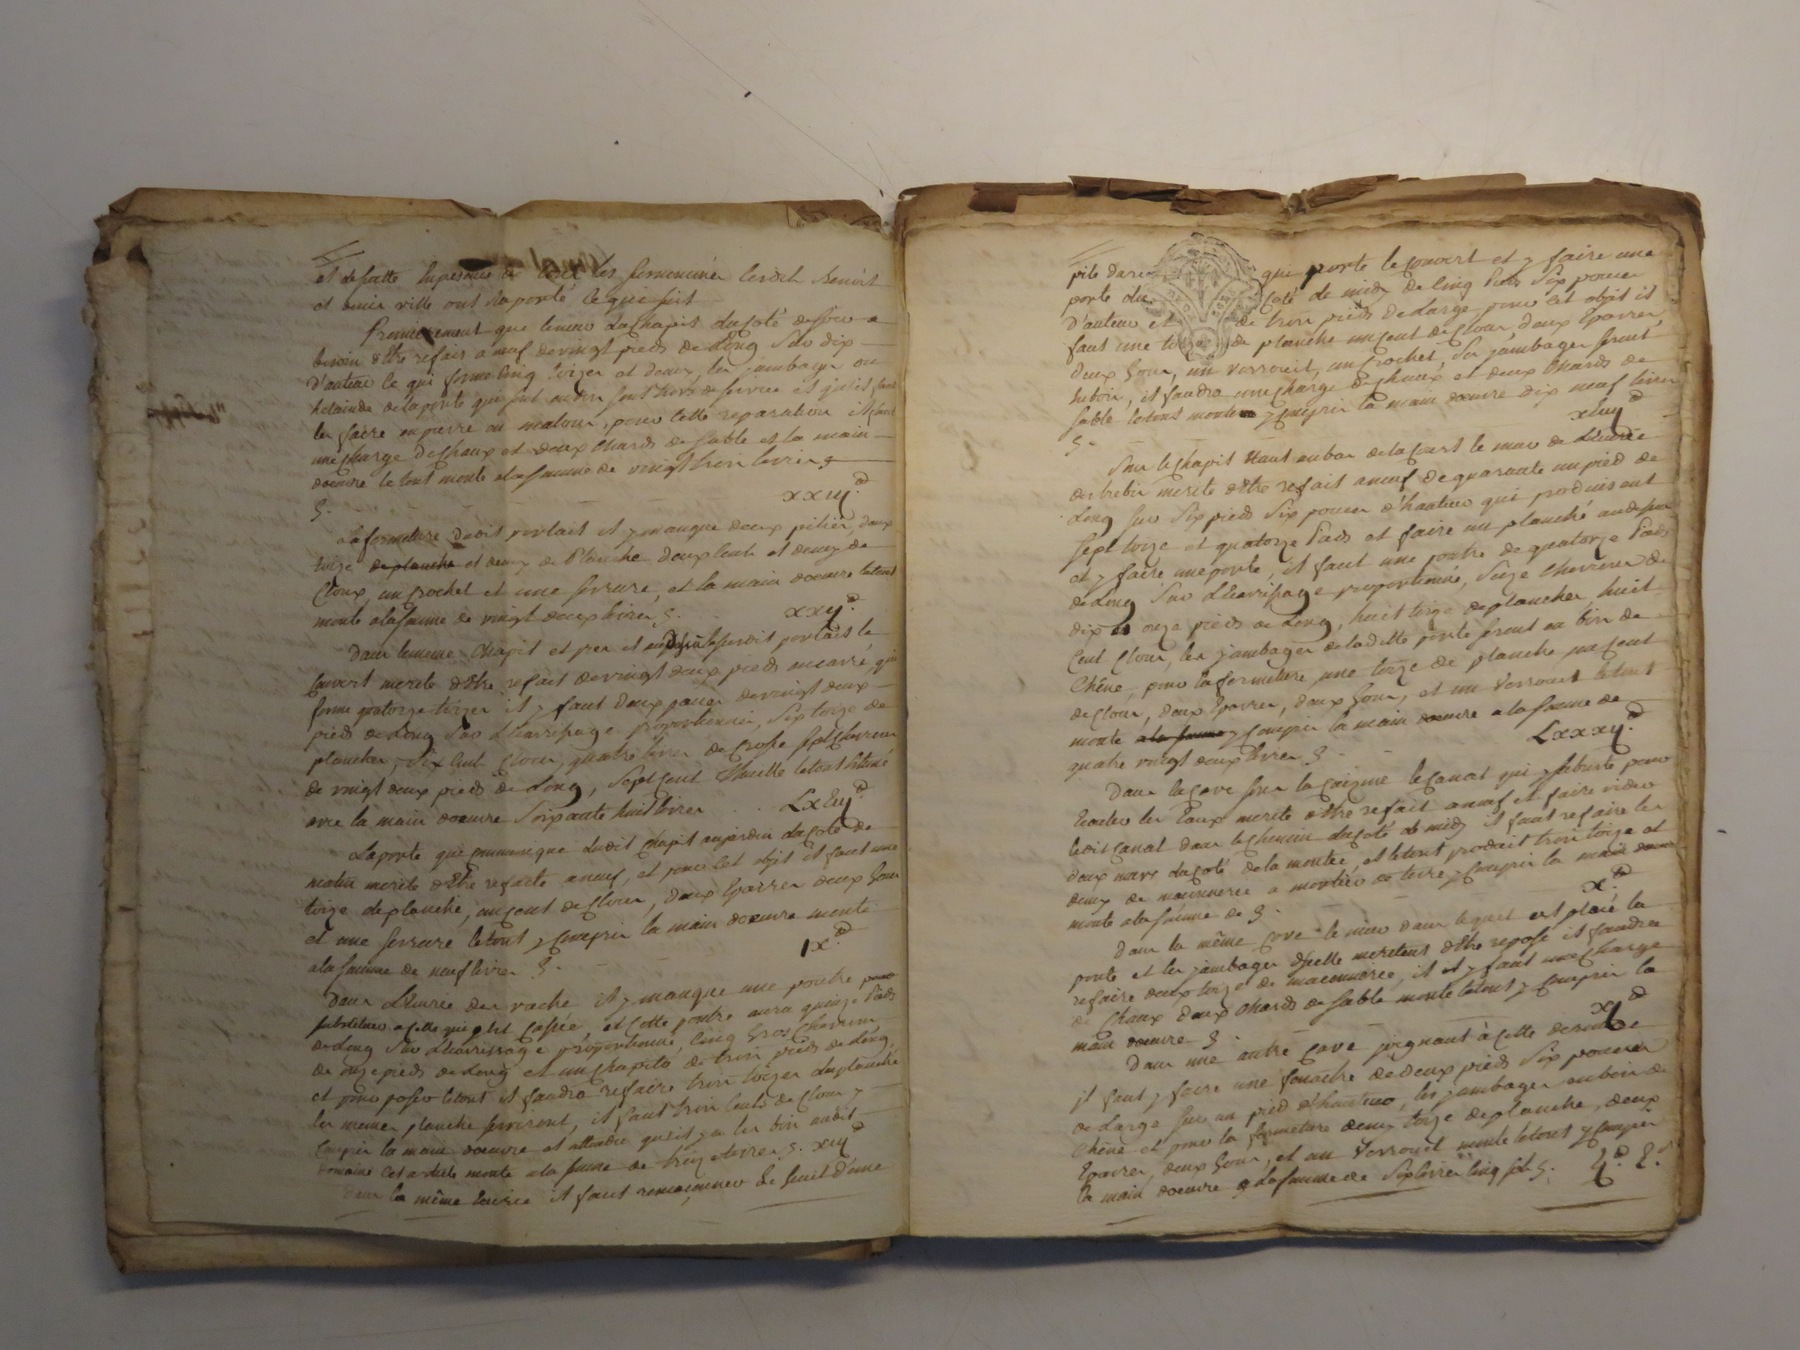 et de suitte
et ville ont raporté le qui suit
Premierement que le mur du Chapit du coté de
besoin d'être refait a neuf de vingt pieds de Long Sur dix
d'auteur ce qui forme cinq toizes et deux, les jambages ou
de la porte qui sont hors de service et
les faire en pierre ou malons, pour cette reparation il faut
une charge de Chaux et deux Chards de sable et la main
doeuvre le tout monte a la somme de vingt trois livres
xxiij.
La fermeture dudit portail il y manque deux piliers, deux
toize de planche et deux de Planche deux cent et demy de
Cloux, un crochet et une serrure, et la main doeuvre le tout
monte a la somme de vingt deux livres
xxij.
Dans le meme Chapit et susdit portail le
couvert merite d'être refait de vingt deux pieds en carré, qui
forme quatorze toizes il y faut deux de vingt deux
pieds de Long Sur L'ecarissage proportionné, Six toize de
plancher, Six cent Cloux, quatre livres de grosse sept chevrons
de vingt deux pieds de Long, Sept cent thuille le tout
avec la main doeuvre Soixante huit livres
Lxviij.
La porte qui communique dudit Chapit au jardin du coté de
matin merite d'être refaite a neuf, et pour cet objet il faut une
toize de planche, un cent de Cloux, deux Eparres deux Gons
et une serrure le tout y compris la main doeuvre monte
a la somme de neuf livres
ix.
Dans L'ecurie des vache il y manque une poutre pour
substituer a celle qui est cassée, et cette poutre aura quinze Pieds
de Long Sur L'ecarissage proportionné, cinq gros Chevrons
de onze pieds de Long et un de trois pieds de Long,
et pour poser le tout il faudra refaire trois toizes du planché
les memes planches serviront, il faut trois cents de Cloux y
compris la main doeuvre et attendu qu'il y a les bois audit
domaine cet article monte a la somme de treize livres xiij
Dans la même Ecurie il faut
qui porte le couvert et y faire une
porte du coté de midy de cinq Pieds Six pouces
D'auteur et de trois pieds de Large, pour cet objet il
faut une toize de planche un cent de Cloux deux Eparres
deux Gons, un verrouil, un crochet, les jambages seront
en bois, il faudra une charge de chaux et deux Chards de
sable le tout monte y compris la main doeuvre dix neuf livres
Sur le Chapit au bas de la Cour le mur de L'ecurie
des brebis merite d'être refait a neuf de quarante un pied de
Long Sur Six pieds Six pouces d'hauteur qui produisent
Sept toize et quatorze Pieds et faire un planché au dessus
et y faire une porte, il faut une poutre de quatorze Pieds
de Long Sur L'ecarissage proportionné, Seize Chevrons de
dix a onze pieds de Long, huit toize de plancher huit
Cent Cloux, les jambages de la ditte porte seront en bois de
Chêne, pour la fermeture une toize de planche un cent
de Cloux, deux Eparres, deux Gons, et un Verrouil le tout
monte a la somme y compris la main doeuvre a la somme de
quatre vingt deux livres
Lxxxij.
Dans la cave sous la cuisine le canal qui y subsiste pour
Ecouler les Eaux merite d'être refait a neuf et faire vider
le dit Canal dans le Chemin du coté de midy il faut refaire les
deux murs du coté de la montée, et le tout produit trois toize et
demy de maconnerie a mortier de terre y compris la main doeuvre
monte a la somme de
x.
Dans la même cave le mur dans lequel est placé la
porte et les jambages d'icelle meritent d'être reposé il faudra
refaire deux toize de maconnerie, il y faut une Charge
de Chaux deux Chards de sable monte le tout y compris la
main doeuvre
Dans une autre Cave joignant à celle
il faut y faire une fenetre de deux pieds Six pouces
de Large sur un pied d'hauteur, les jambages en bois de
Chêne et pour la fermeture demy toize de planche, deux
Eparres, deux Gons, et un Verrouil monte le tout y compris
la main doeuvre a La somme de Six livres cinq sols